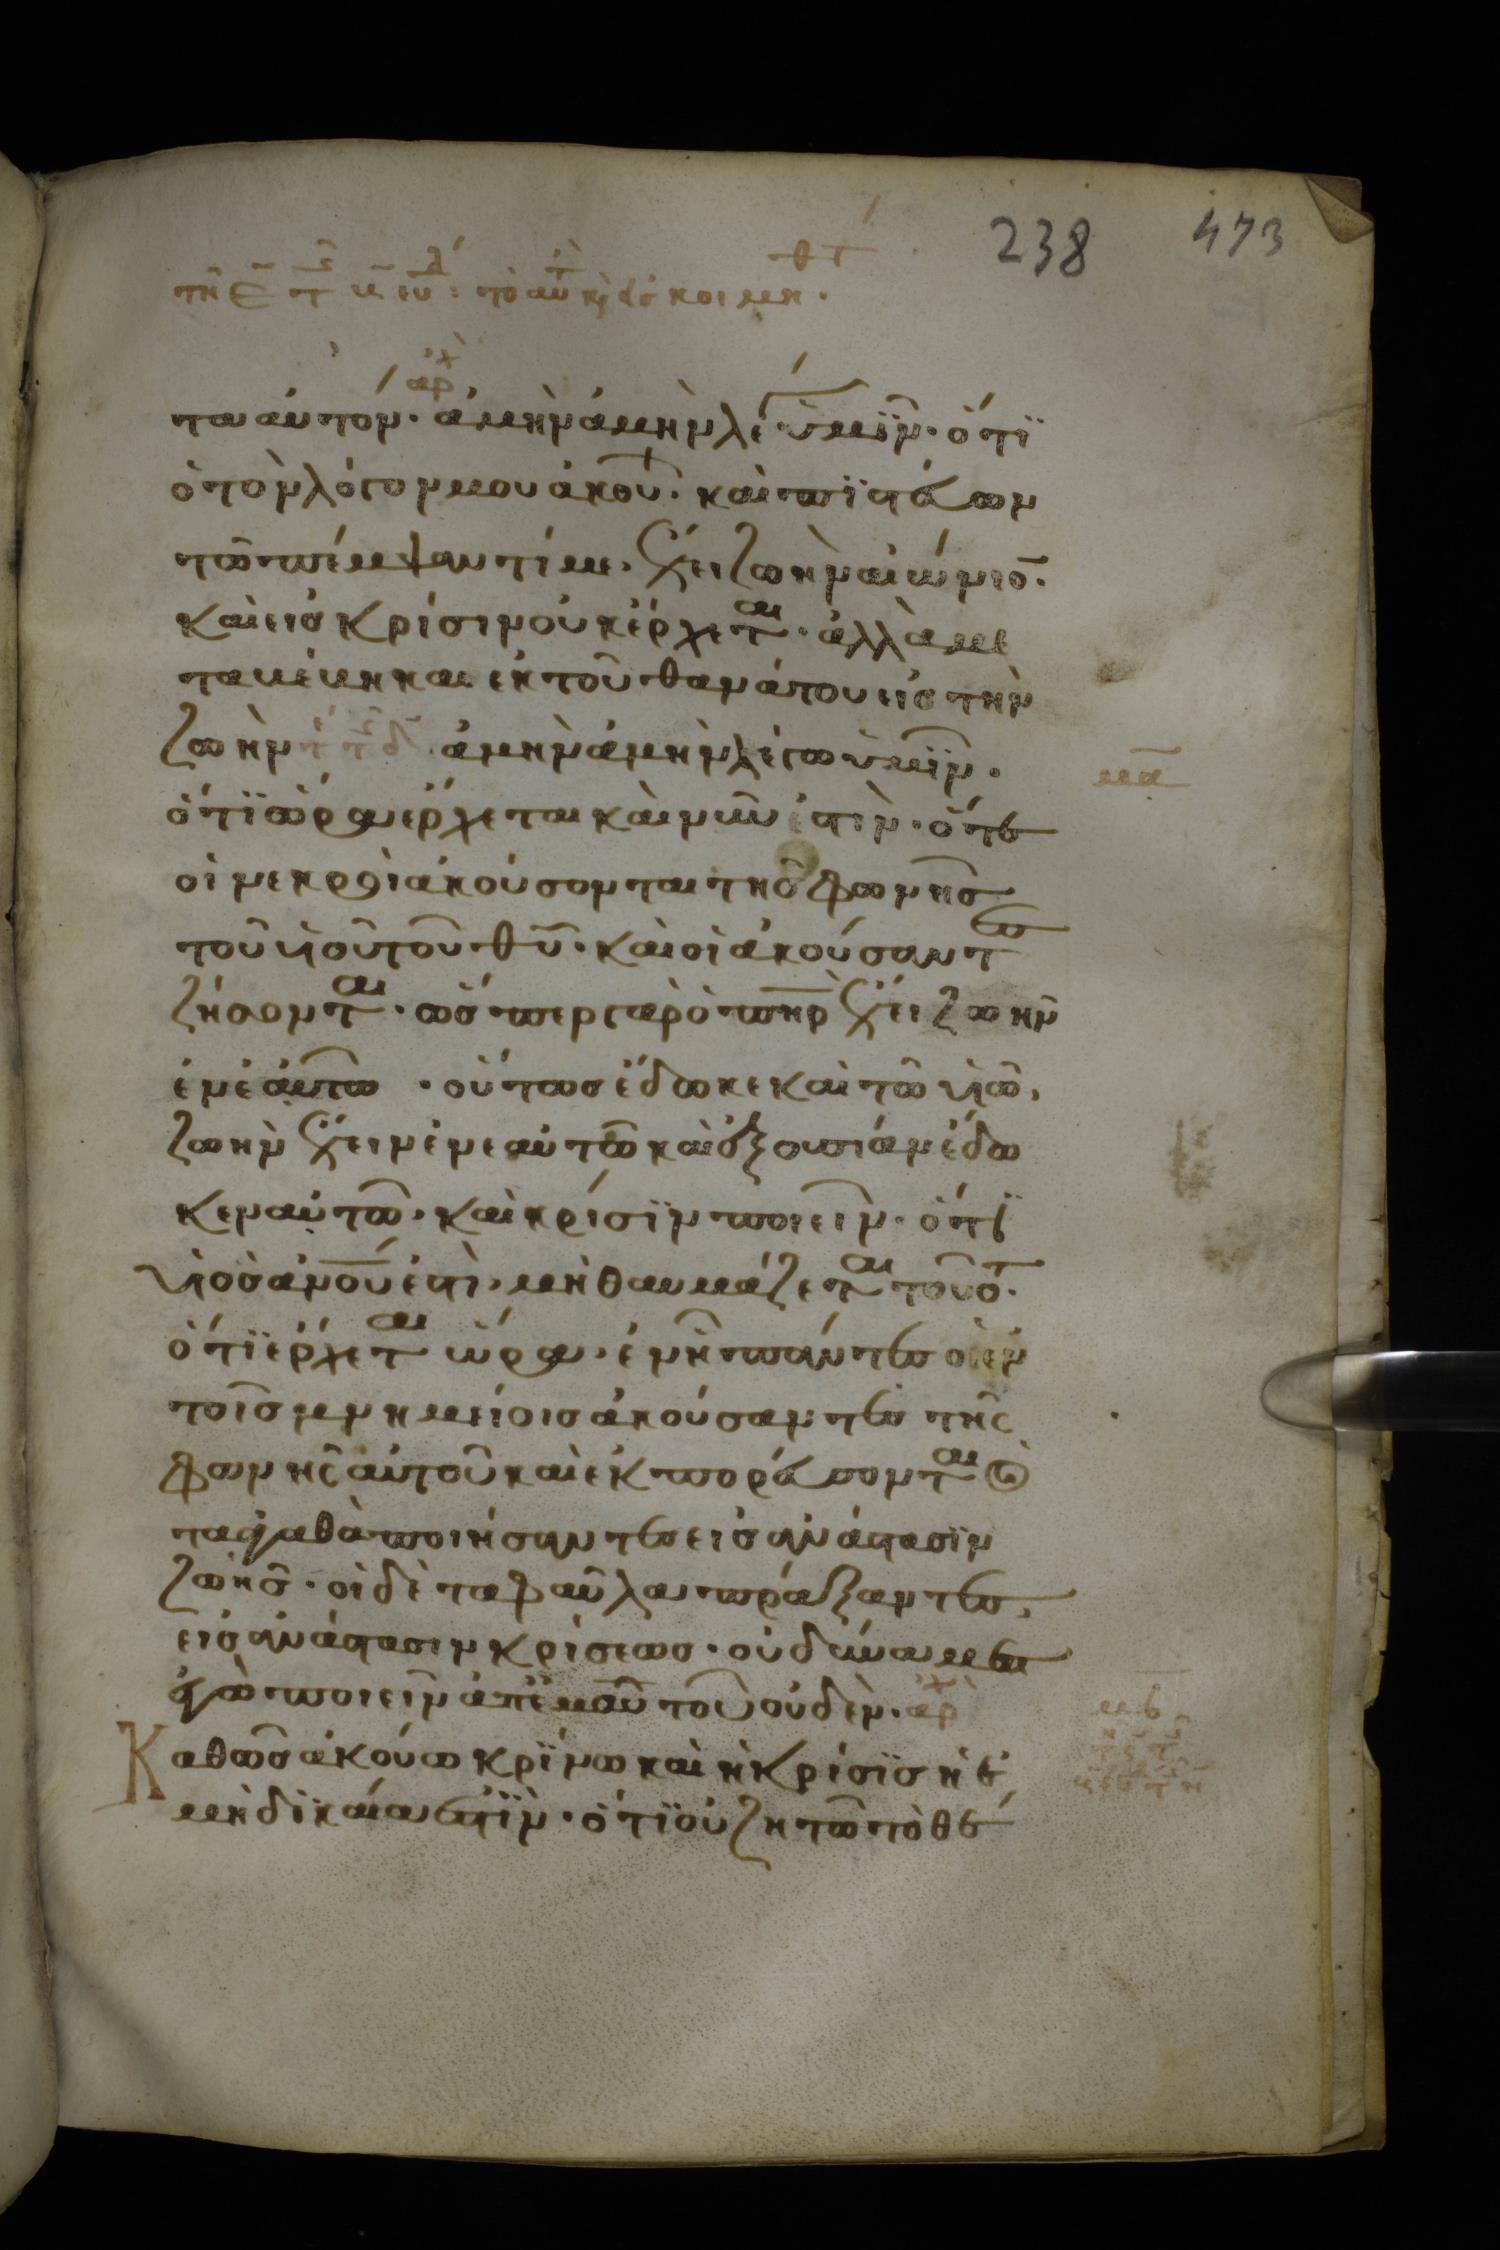 238 473
τῆ ε τ κ ευ : τὸ αυ κ(αὶ) εἰς κοιμη.
αρχ
τα αυτόν· ἀμὴν ἀμὴν λέγω ὑμῖν· ὅτι
ὁ τὸν λόγον μου ἀκούων· καὶ πιστεύων
τῶ πέμψαντί με, ἔχει ζωὴν αἰώνιον·
καὶ εἰς κρίσιν οὐκ ἔρχεται· ἀλλὰ με
ταβέβηκαι ἐκ τοῦ θανάτου εἰς τὴν
ζωὴν ἀμὴν ἀμὴν λέγω ὑμῖν·
μα
ὅτι ὥρα ἔρχεται καὶ νῦν ἐστὶν· ὅτε
οἱ νεκροὶ ἀκούσονται τῆς φωνῆς
τοῦ υἱοῦ τοῦ θυ· καὶ οἱ ἀκούσαντες
ζήσονται· ὥσπερ γὰρ ὁ πηρ ἔχει ζωὴν
ἐν ἑαυτῶ · οὕτως ἔδωκε καὶ τῶ υἱῶ,
ζωὴν ἔχειν ἐν ἑαυτῶ καὶ ἐξουσίαν ἔδω
κεν αὐτῶ, καὶ κρίσιν ποιεῖν· ὅτι
υἱὸς ἀνου ἐστὶ, μὴ θαυμάζεται τοῦτο·
ὅτι ἔρχεται ὥρα· ἐν ἧ πάντες οἱ ἐν
τοῖς μνημείοις ἀκούσαντες τῆς
φωνῆς αὐτοῦ καὶ ἐκπορεύσονται οἱ
τὰ ἀγαθὰ ποιήσαντες εἰς ἀνάστασιν
ζωῆς· οἱ δὲ τὰ φαῦλα πράξαντες,
εἰς ἀνάστασιν κρίσεως· οὐ δύναμαι
ἐγὼ ποιεῖν ἀπ' ἐμαυτοῦ οὐδὲν· αρχ
μβ
Καθὼς ἀκούω κρίνω καὶ ἡ κρίσις ἡ ἐ
μὴ δικαία ἐστὶν· ὅτι οὐ ζητῶ τὸ θέ